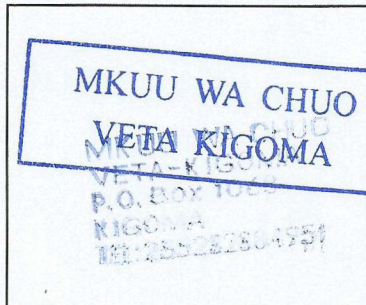 MKUU WA CHUO
VETA KIGOMA
MKUU WA CHUO
VETA-KIGOMA
P.O. BOX 1063
KIGOMA